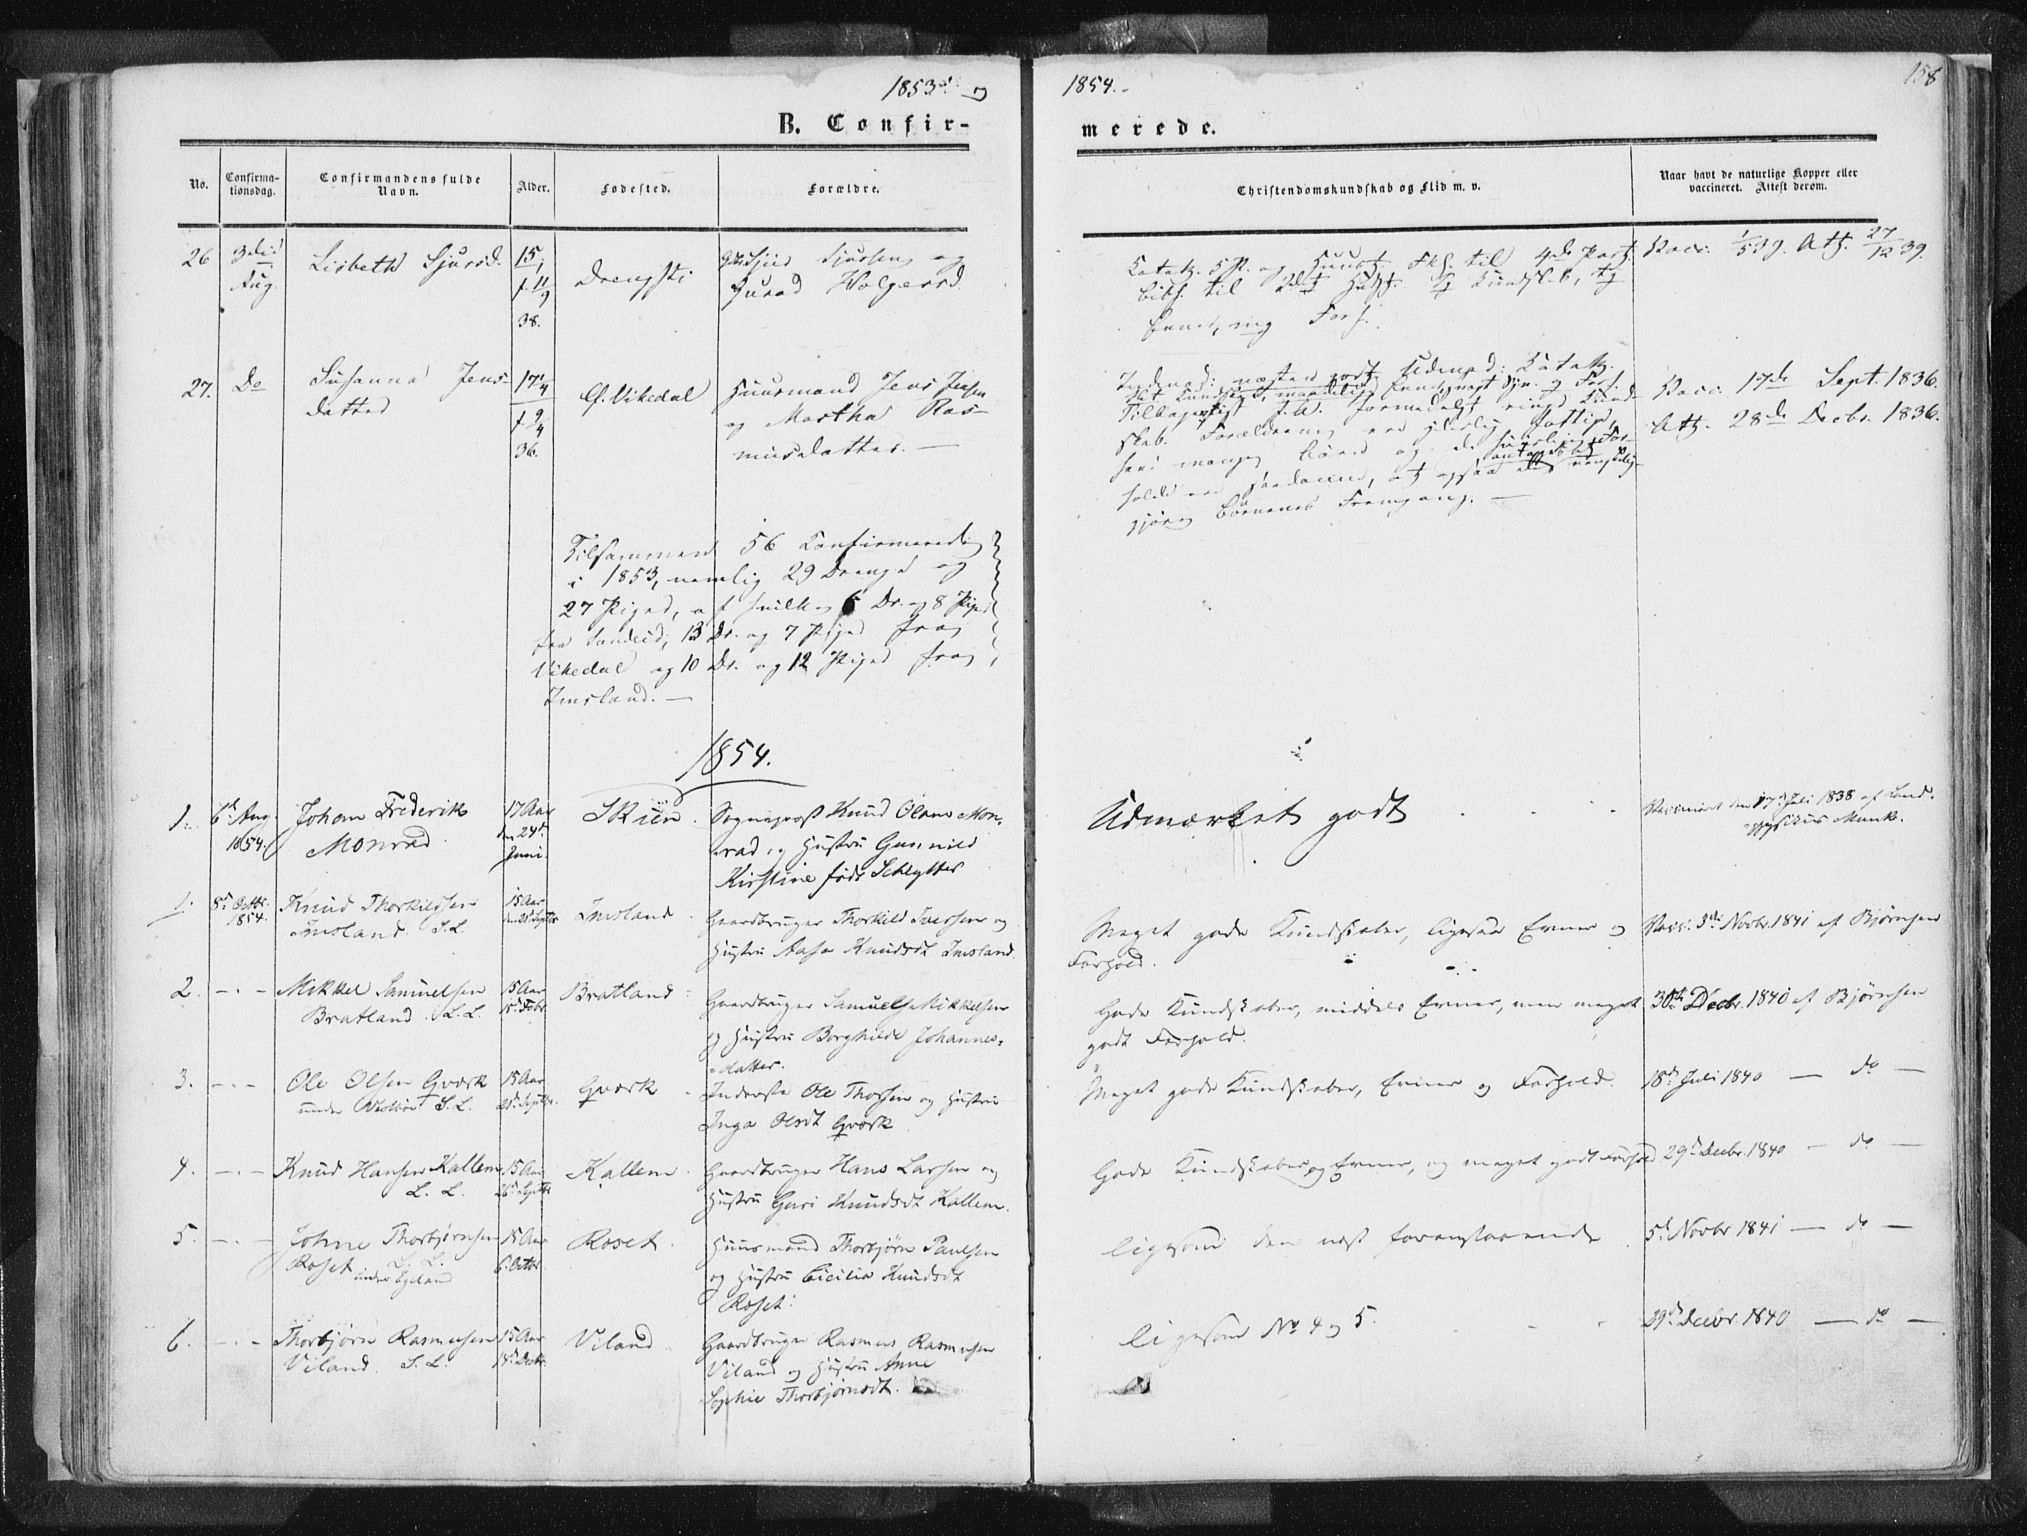 1853 og
1854.
158
B. Confir-
merede.
No.
Confirma-
tionsdag.
Confirmandens fulde
Navn.
Alder.
Fødested.
Forældre.
Christendomskundskab og Flid m. v.
Naar havt de naturlige Kopper eller
vaccineret. Attest derom.
26
3die
Aug.
Lisbeth Sjursd.
15
f. 11/9
38.
Drengsti
Sjursen og
Gurod Holgersd.
Vacc. 1/5 39. Att. 27/12 39.
27.
Do
Susanna Jens-
datter
17 1/4
f. 9/4
36.
Ø. Vikedal
Huusmand Jens Jensen
og Martha Ras-
musdatter. —
Børnenes Fremgang. —
Vacc. 17de Sept. 1836.
Att. 28de Decbr. 1836.
Tilsammen 56 Confirmerede
i 1853, nemlig 29 Drenge og
27 Piger, af hvilke 6 Dr. og 8 Piger
fra Sandeid, 13 Dr. og 7 Piger fra
Vikedal og 10 Dr. og 12 Piger fra
Imsland. —
1854.
1.
6te Aug
1854.
Johan Frederik
Monrad
17 Aar
den 24de
Juni.
Skien.
Sogneprest Knud Olaus Mon-
rad og Hustru Gunnild
Kirstine født Schlytter
Udmærket godt
Vaccineret den 17de Juli 1838 af Land-
physikus Munk.
1.
8de Octbr.
1854.
Knud Thorkildsen
Imsland. S.L.
15 Aar
Imsland.
Gaardbruger Thorkild Iversen og
Hustru Aasa Knudsdt Imsland.
Meget gode Kundskaber, ligesaa Evner og
Forhold.
Vacc. 3die Novbr. 1841 af Bjørnsen
2.
Mikkel Samuelsen
Bratland. S.L.
15 Aar
15de Febr.
Bratland
Gaardbruger Samuel Mikkelsen
og Hustru Borghilde Johannes-
datter.
Gode Kundskaber, middels Evner, men meget
godt Forhold.
30te Decbr. 1840 af Bjørnsen
3.
Ole Olsen Qværk
under S.L.
15 Aar
Qværk
Inderste Ole Thorsen og Hustru
Inga Olsdt Qværk
Meget gode Kundskaber, Evner og Forhold.
18de Juli 1840 — do —
4.
Knud Hansen Kallem
L. L.
15 Aar
Kallem.
Gaardbruger Hans Larsen og
Hustru Guri Knudsdt Kallem.
Gode Kundskaber og Evner, og meget godt Forhold
29de Decbr. 1840 — do —
5.
Johne Thorbjørnsen
Roset L. L.
under Egeland
15 Aar
6 Octbr.
Roset.
Huusmand Thorbjørn Paulsen
og Hustru Cicilia Knudsdt
Roset.
ligesom den næst foranstaaende
5te Novbr 1841 — do —
6.
Thorbjørn Rasmusen
Viland. S.L.
15 Aar
Viland
Gaardbruger Rasmus Rasmusen
Viland og Hustru Anne
Sophie Thorbjørnsdt.
ligesom No 4 og 5.
29de Decbr 1840 — do —